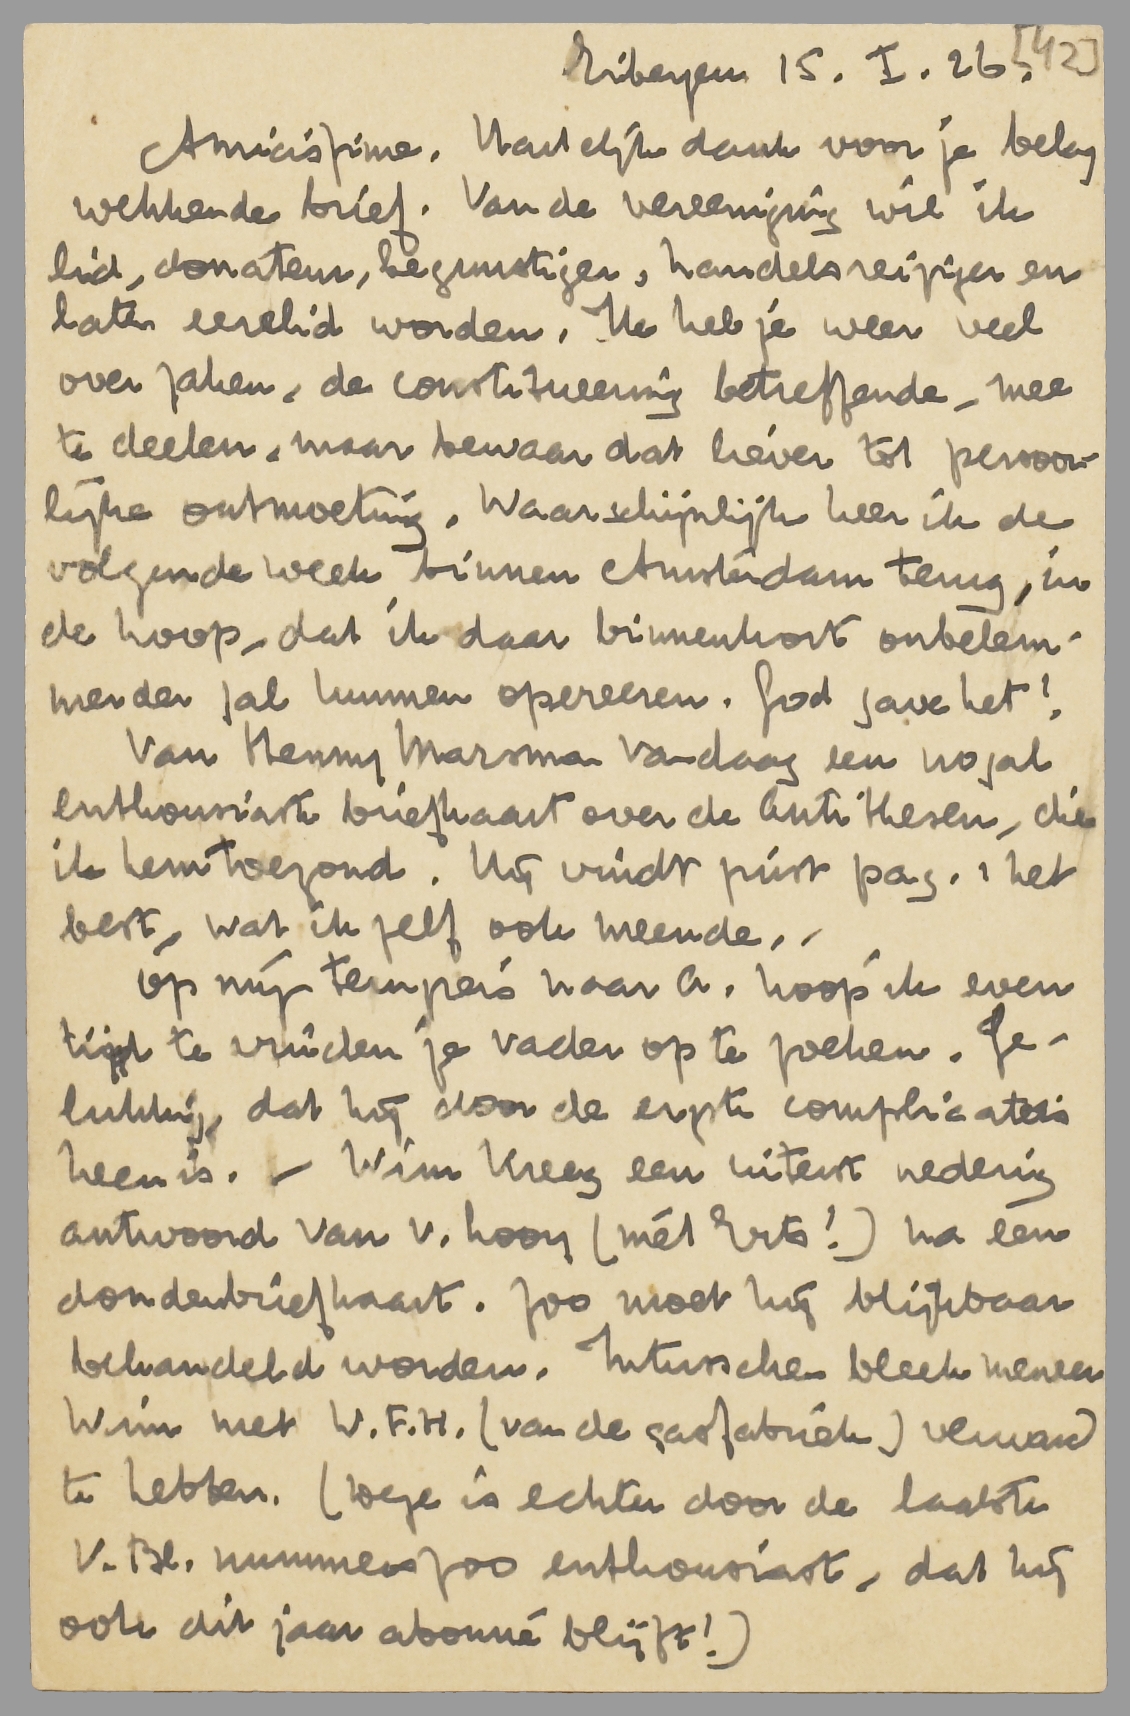 Eibergen 15. I. 26. [42]
Amicissime. Hartelijk dank voor je belang
wekkende brief. Van de vereeniging wil ik
lid, donateur, begunstiger, handelsreiziger en
later eerelid worden. Ik heb je weer veel
over zaken, de constitueering betreffende, mee
te deelen, maar bewaar dat liever tot persoon-
lijke ontmoeting. Waarschijnlijk keer ik de
volgende week binnen Amsterdam terug, in
de hoop, dat ik daar binnenkort onbelem-
merder zal kunnen opereeren. God gave het!
Van Henny Marsman vandaag een nogal
enthousiaste briefkaart over de Anti thesen, die
ik hem toezond. Hij vindt juist pag. 1 het
best, wat ik zelf ook meende. -
Op mijn terugreis naar A. hoop ik even
tijd te vinden je vader op te zoeken. Ge-
lukkig, dat hij door de ergste complicaties
heen is. - Wim kreeg een uiterst nederig
antwoord van v. Looy (mét Erts!) na één
donderbriefkaart. Zoo moet hij blijkbaar
behandeld worden. Intusschen bleek meneer
Wim met W.F.H. (van de gasfabriek) verward
te hebben. ( is echter door de laatste
V. Bl. nummers zoo enthousiast, dat hij
ook dit jaar abonné blijft!)